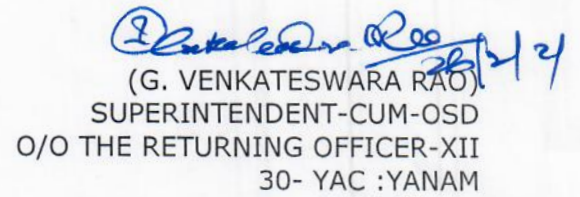 (G. VENKATESWARA RAO)
SUPERINTENDENT-CUM-OSD
O/O THE RETURNING OFFICER-XII
30- YAC :YANAM